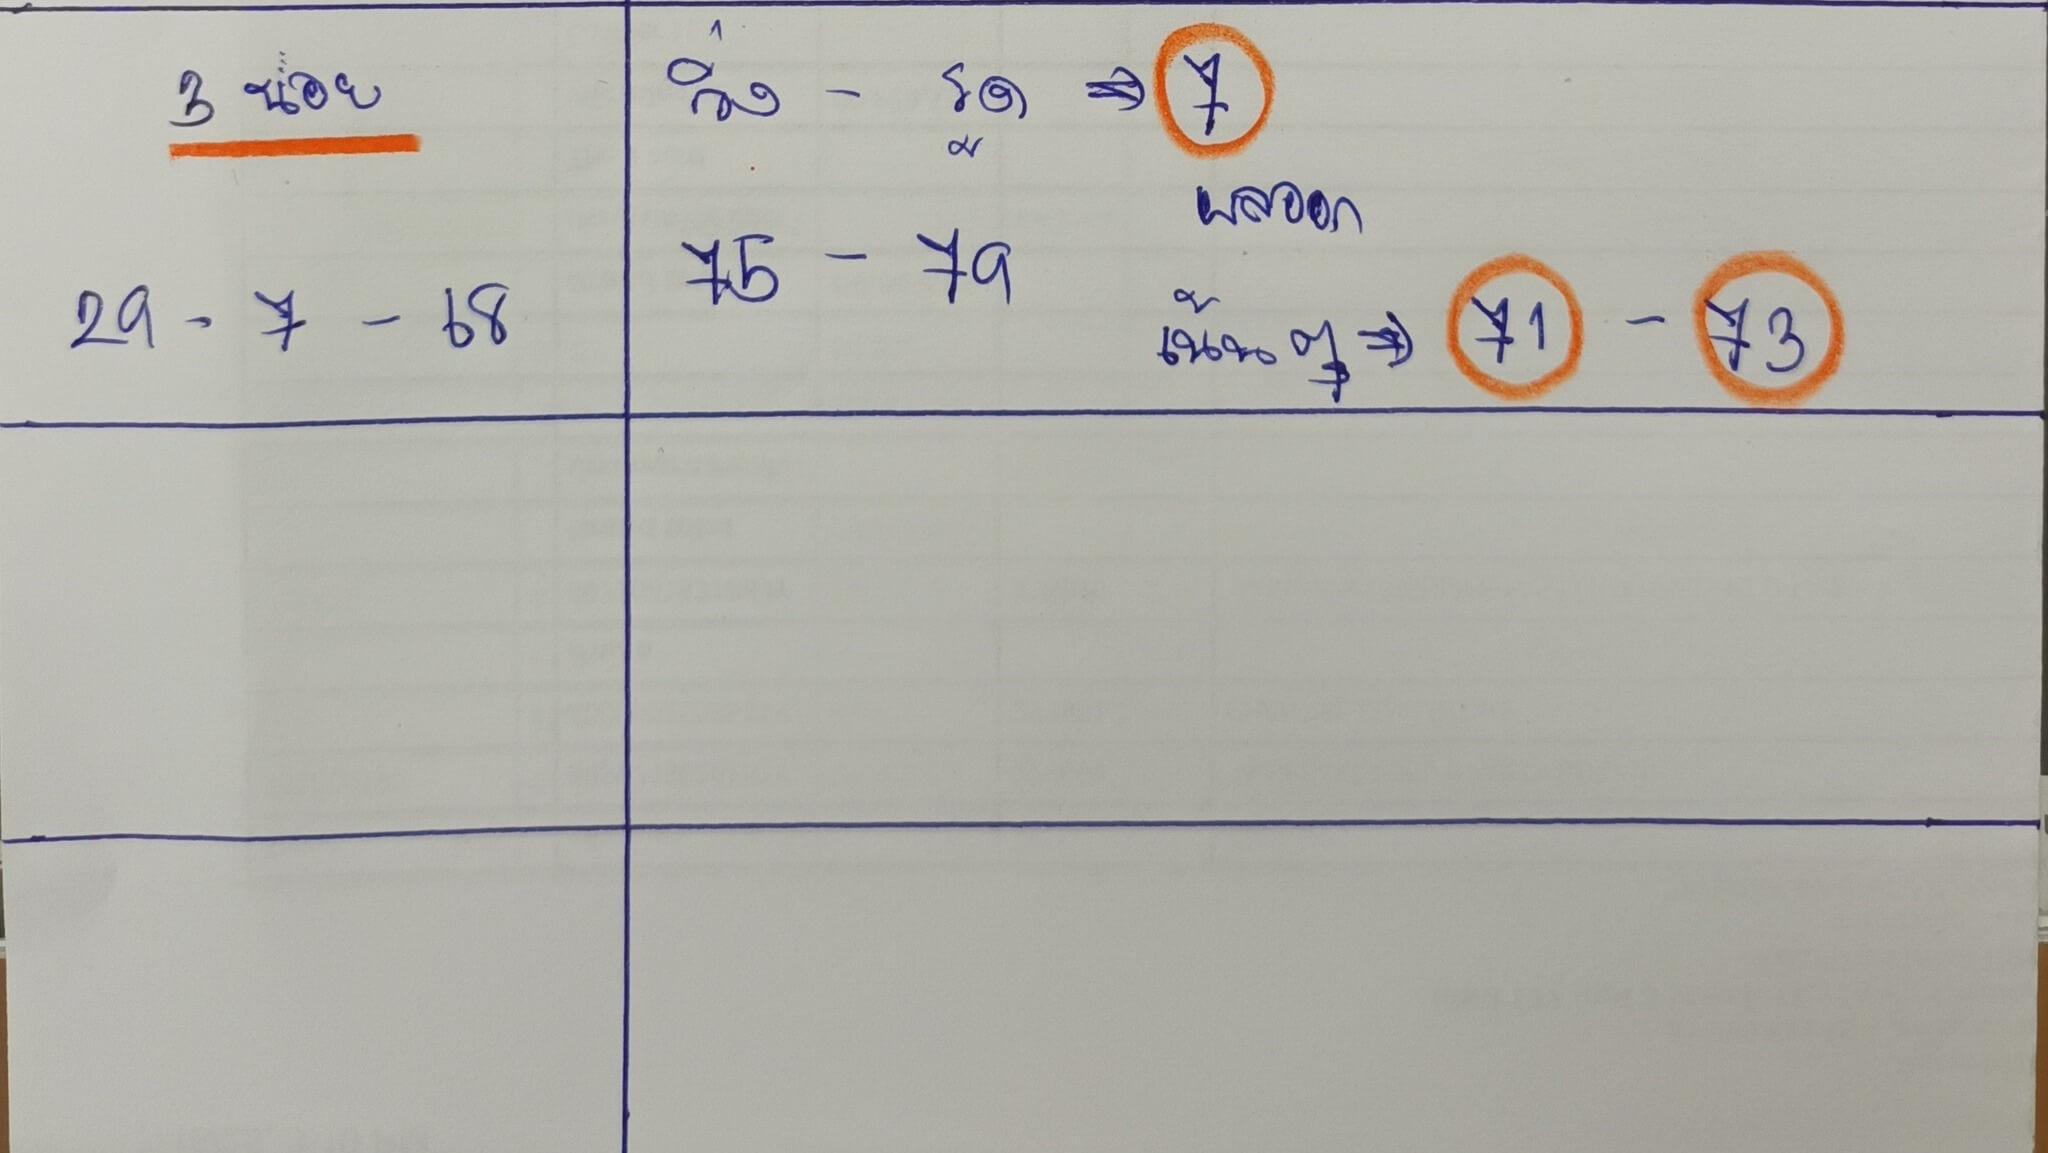 3 น่อย
29 - 7 - 68
วิ่ง - รูด ⇒ 7
75 - 79
ผลออก
เน้น ๆ ⇒ 71 - 73